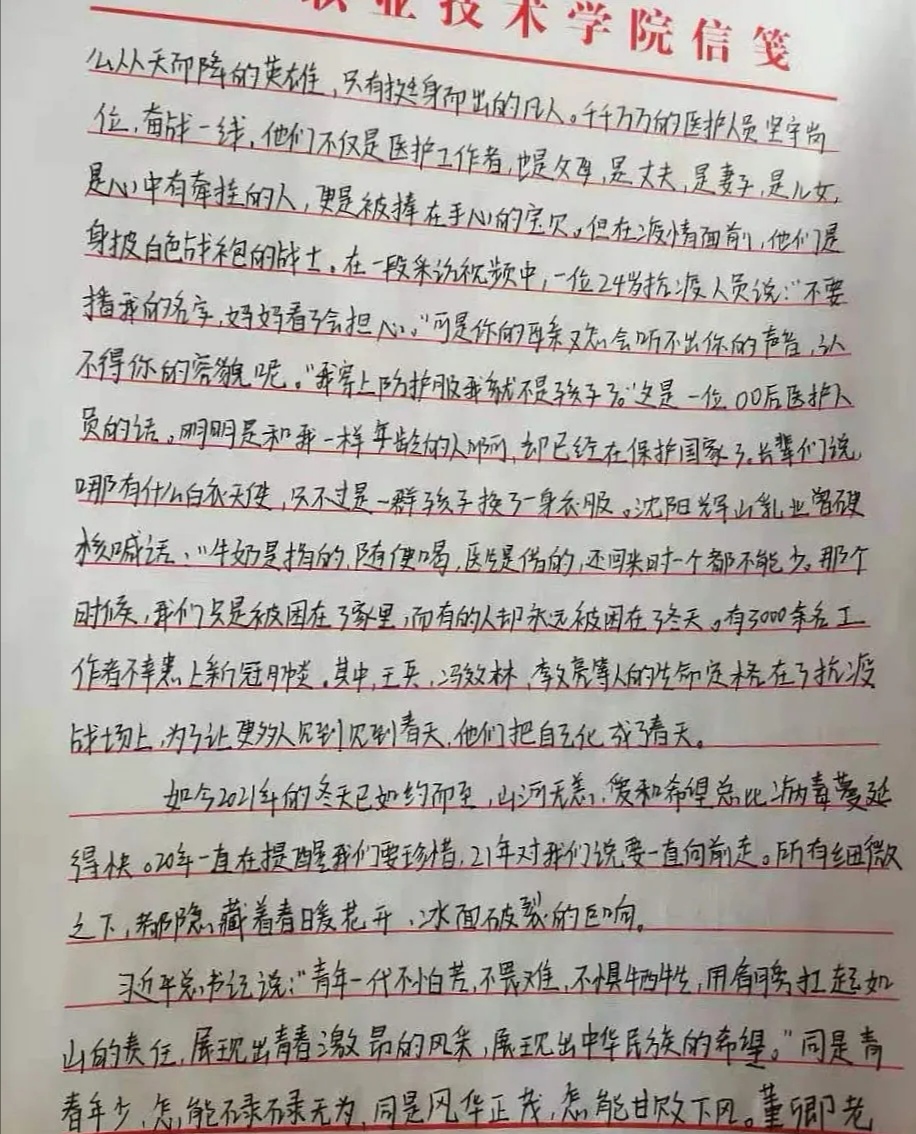 职业技术学院信笺
么从天而降的英雄，只有挺身而出的凡人。千千万万的医护人员坚守岗
位，奋战一线，他们不仅是医护工作者，也是父母，是丈夫，是妻子，是儿女，
是心中有牵挂的人，更是被捧在手心的宝贝。但在疫情面前，他们是
身披白色战袍的战士。在一段采访视频中，一位24岁抗疫人员说：“不要
播我的名字，妈妈看了会担心。”可是你的母亲又怎会听不出你的声音，认
不得你的容貌呢。“我穿上防护服我就不是孩子了。”这是一位00后医护人
员的话。明明是和我一样年龄的人啊，却已经在保护国家了。长辈们说
哪有什么白衣天使，只不过是一群孩子换了一身衣服。沈阳辉山乳业曾硬
核喊话：“牛奶是捐的，随便喝，医生是借的，还回来时一个都不能少。那个
时候，我们只是被困在了家里，而有的人却永远被困在了冬天。有3000余名工
作者不幸患上新冠肺炎。其中，王兵，冯效林，李文亮等人的生命定格在了抗疫
战场上，为了让更多人见到见到春天，他们把自己化成了春天。
如今2021年的冬天已如约而至，山河无恙，爱和希望总比病毒蔓延
得快。20年一直在提醒我们要珍惜，21年对我们说要一直向前走。所有细微
之下，都隐藏着春暖花开，冰面破裂的巨响。
习近平总书记说：“青年一代不怕苦，不畏难，不惧牺牲，用肩膀扛起如
山的责任，展现出青春激昂的风采，展现出中华民族的希望。”同是青
春年少，怎能碌碌无为，同是风华正茂，怎能甘败下风。董卿老